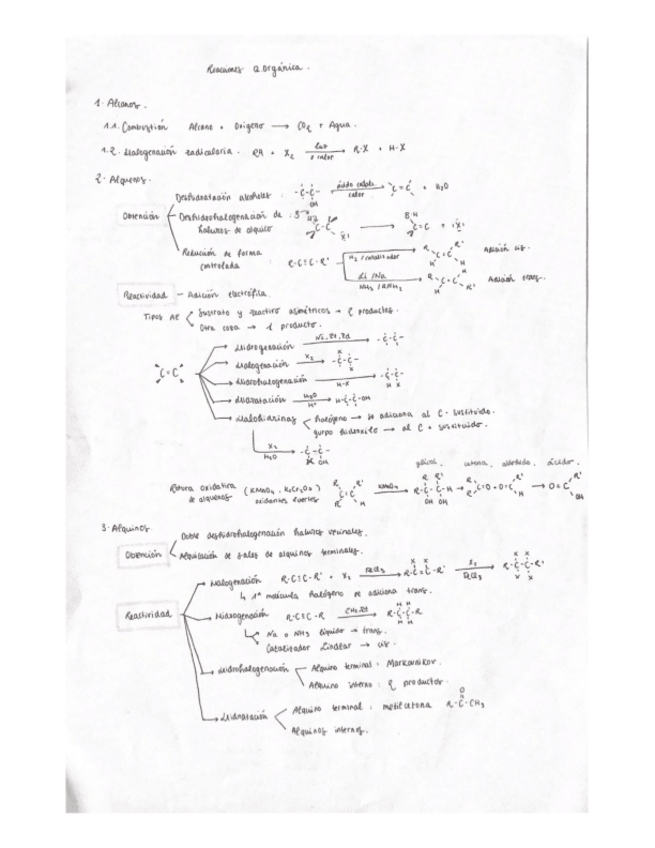 Reacciones Q. Orgánica.
1. Alcanos.
1.1. Combustión Alcano + Oxígeno → CO2 + Agua.
1.2. Halogenación radicalaria. RH + X2 luz o calor → R-X + H-X
2. Alquenos.
Obtención
Deshidratación alcoholes : -C-C- OH ácido catál. calor → C=C + H2O
Deshidrohalogenación de haluros de alquilo
Reducción de forma controlada : R-C≡C-R'
H2 / catalizador → R R' C=C H H Adición cis.
Li / Na NH3 / RNH2 → R H C=C H R' Adición trans.
Reactividad – Adición electrófila.
Tipos AE
Sustrato y reactivo asimétricos → 2 productos.
Otra cosa → 1 producto.
C=C
Hidrogenación Ni, Pt, Pd → -C-C-
Halogenación X2 → -C-C-
Hidrohalogenación H-X → -C-C- H X
Hidratación H2O H+ → H-C-C-OH
Halohidrinas
halógeno → se adiciona al C - sustituido.
grupo hidroxilo → al C + sustituido.
X2 H2O → -C-C- X OH
glicol, cetona, aldehído, ácido.
Rotura oxidativa de alquenos (KMnO4, K2Cr2O7) oxidantes fuertes
R R' C=C R H KMnO4 → R-C-C-H OH OH → C=O + O=C → O=C R' OH
3. Alquinos.
Obtención
Doble deshidrohalogenación haluros vecinales.
Alquilación de sales de alquinos terminales.
Reactividad
Halogenación R-C≡C-R' + X2 FeCl3 → R-C=C-R' X2 FeCl3 → R-C-C-R'
↳ 1ª molécula halógeno se adiciona trans.
Hidrogenación R-C≡C-R → R-C-C-R
Na o NH3 líquido → trans.
Catalizador Lindlar → cis.
Hidrohalogenación
Alquino terminal : Markovnikov.
Alquino interno : 2 productos.
Hidratación
Alquino terminal : metilcetona R-C-CH3 O
Alquinos internos.